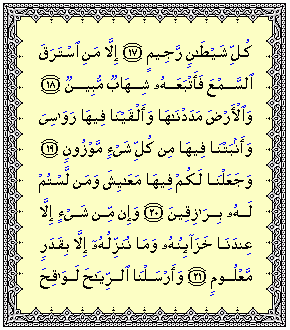 كُلِّ شَيْطَٰنٍ رَّجِيمٍ ١٧ إِلَّا مَنِ ٱسْتَرَقَ
ٱلسَّمْعَ فَأَتْبَعَهُۥ شِهَابٌ مُّبِينٌ ١٨
وَٱلْأَرْضَ مَدَدْنَٰهَا وَأَلْقَيْنَا فِيهَا رَوَٰسِىَ
وَأَنۢبَتْنَا فِيهَا مِن كُلِّ شَىْءٍ مَّوْزُونٍ ١٩
وَجَعَلْنَا لَكُمْ فِيهَا مَعَٰيِشَ وَمَن لَّسْتُمْ
لَهُۥ بِرَٰزِقِينَ ٢٠ وَإِن مِّن شَىْءٍ إِلَّا
عِندَنَا خَزَآئِنُهُۥ وَمَا نُنَزِّلُهُۥٓ إِلَّا بِقَدَرٍ
مَّعْلُومٍ ٢١ وَأَرْسَلْنَا ٱلرِّيَٰحَ لَوَٰقِحَ